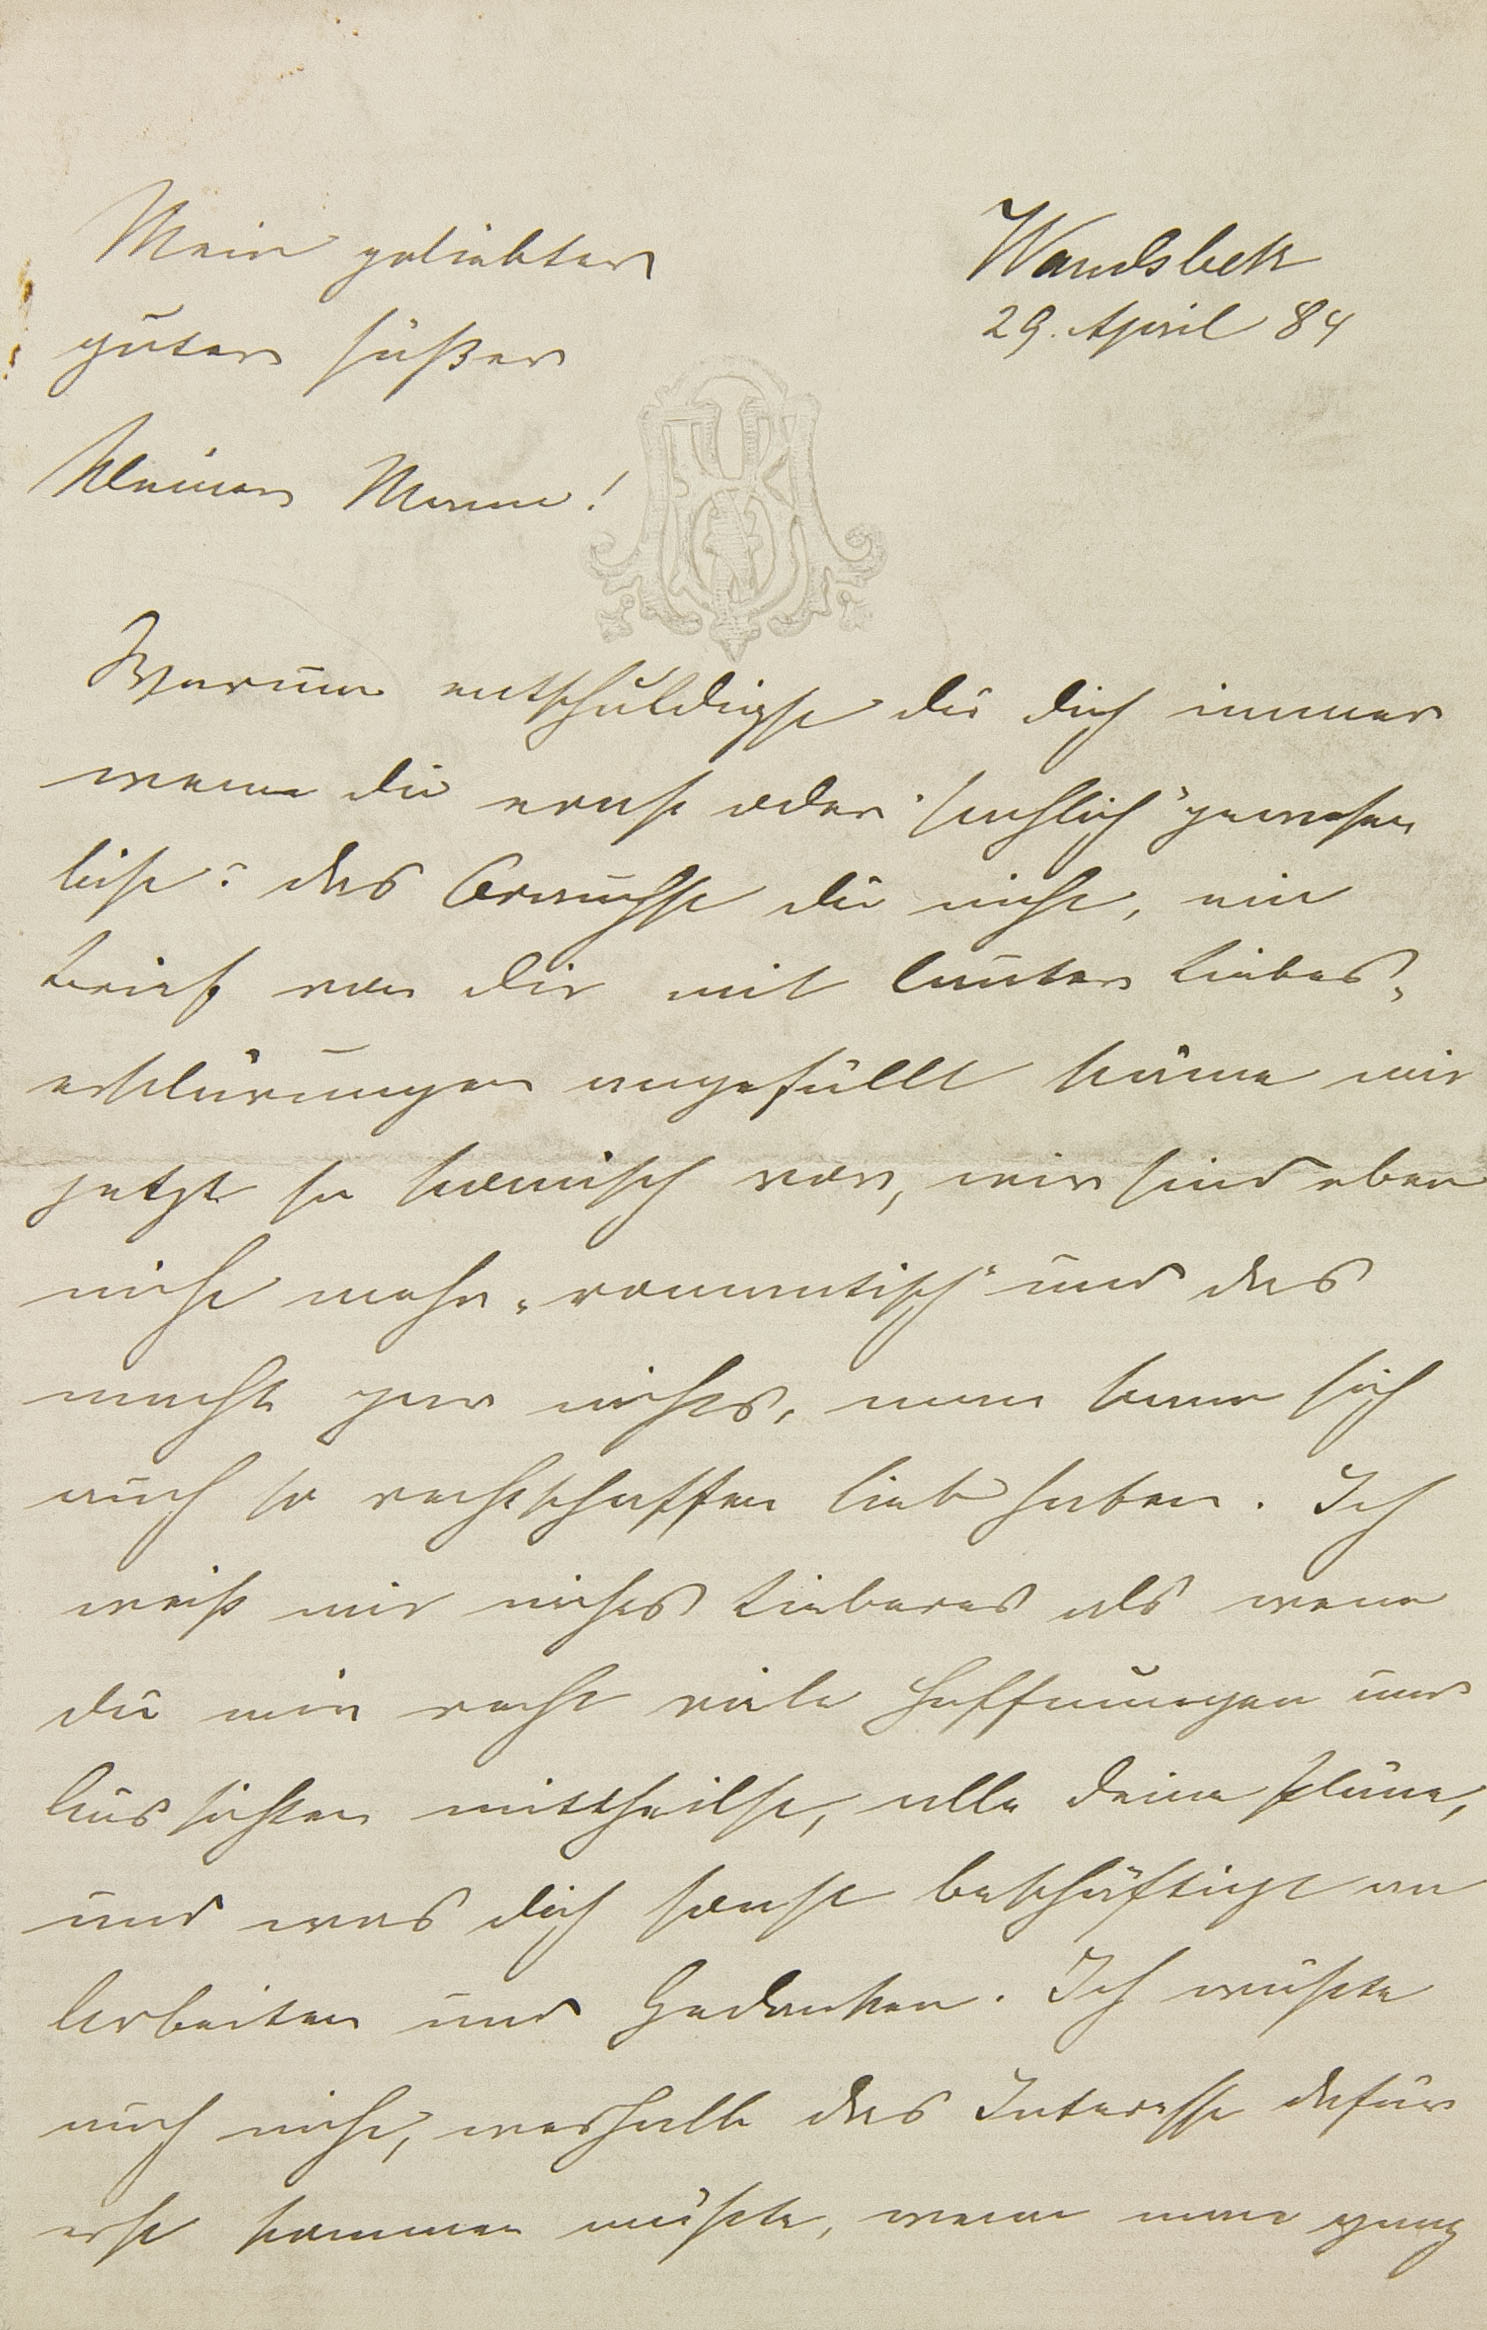 Wandsbek
29. April 84
Mein geliebter
guter süßer
kleiner Mann!
Warum entschuldigst du dich immer
wenn du ernst oder „sachlich“ gewesen
bist? das brauchst du nicht, ein
Brief von dir mit lauter Liebes-
erklärungen angefüllt käme mir
jetzt so komisch vor, wir sind eben
nicht mehr „romantisch“ und das
macht gar nichts, man kann sich
auch so rechtschaffen lieb haben. Ich
weiß mir nichts Lieberes als wenn
du mir recht viele Hoffnungen und
Aussichten mittheilst, alle deine Pläne,
und was dich sonst beschäftigt an
Arbeiten und Gedanken. Ich wüßte
auch nicht, weshalb das Interesse dafür
erst kommen müßte, wenn man ganz